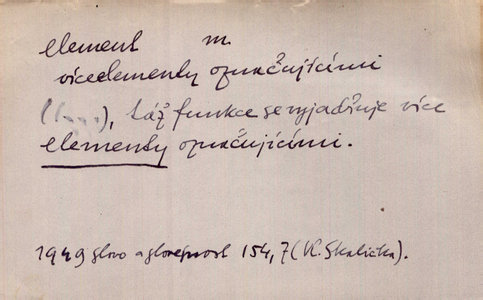 element m.
víceelementy označujícími
(...), táž funkce se vyjadřuje více
elementy označujícími.
1949 Slovo a slovesnost 154, 7 (V. Skalička).